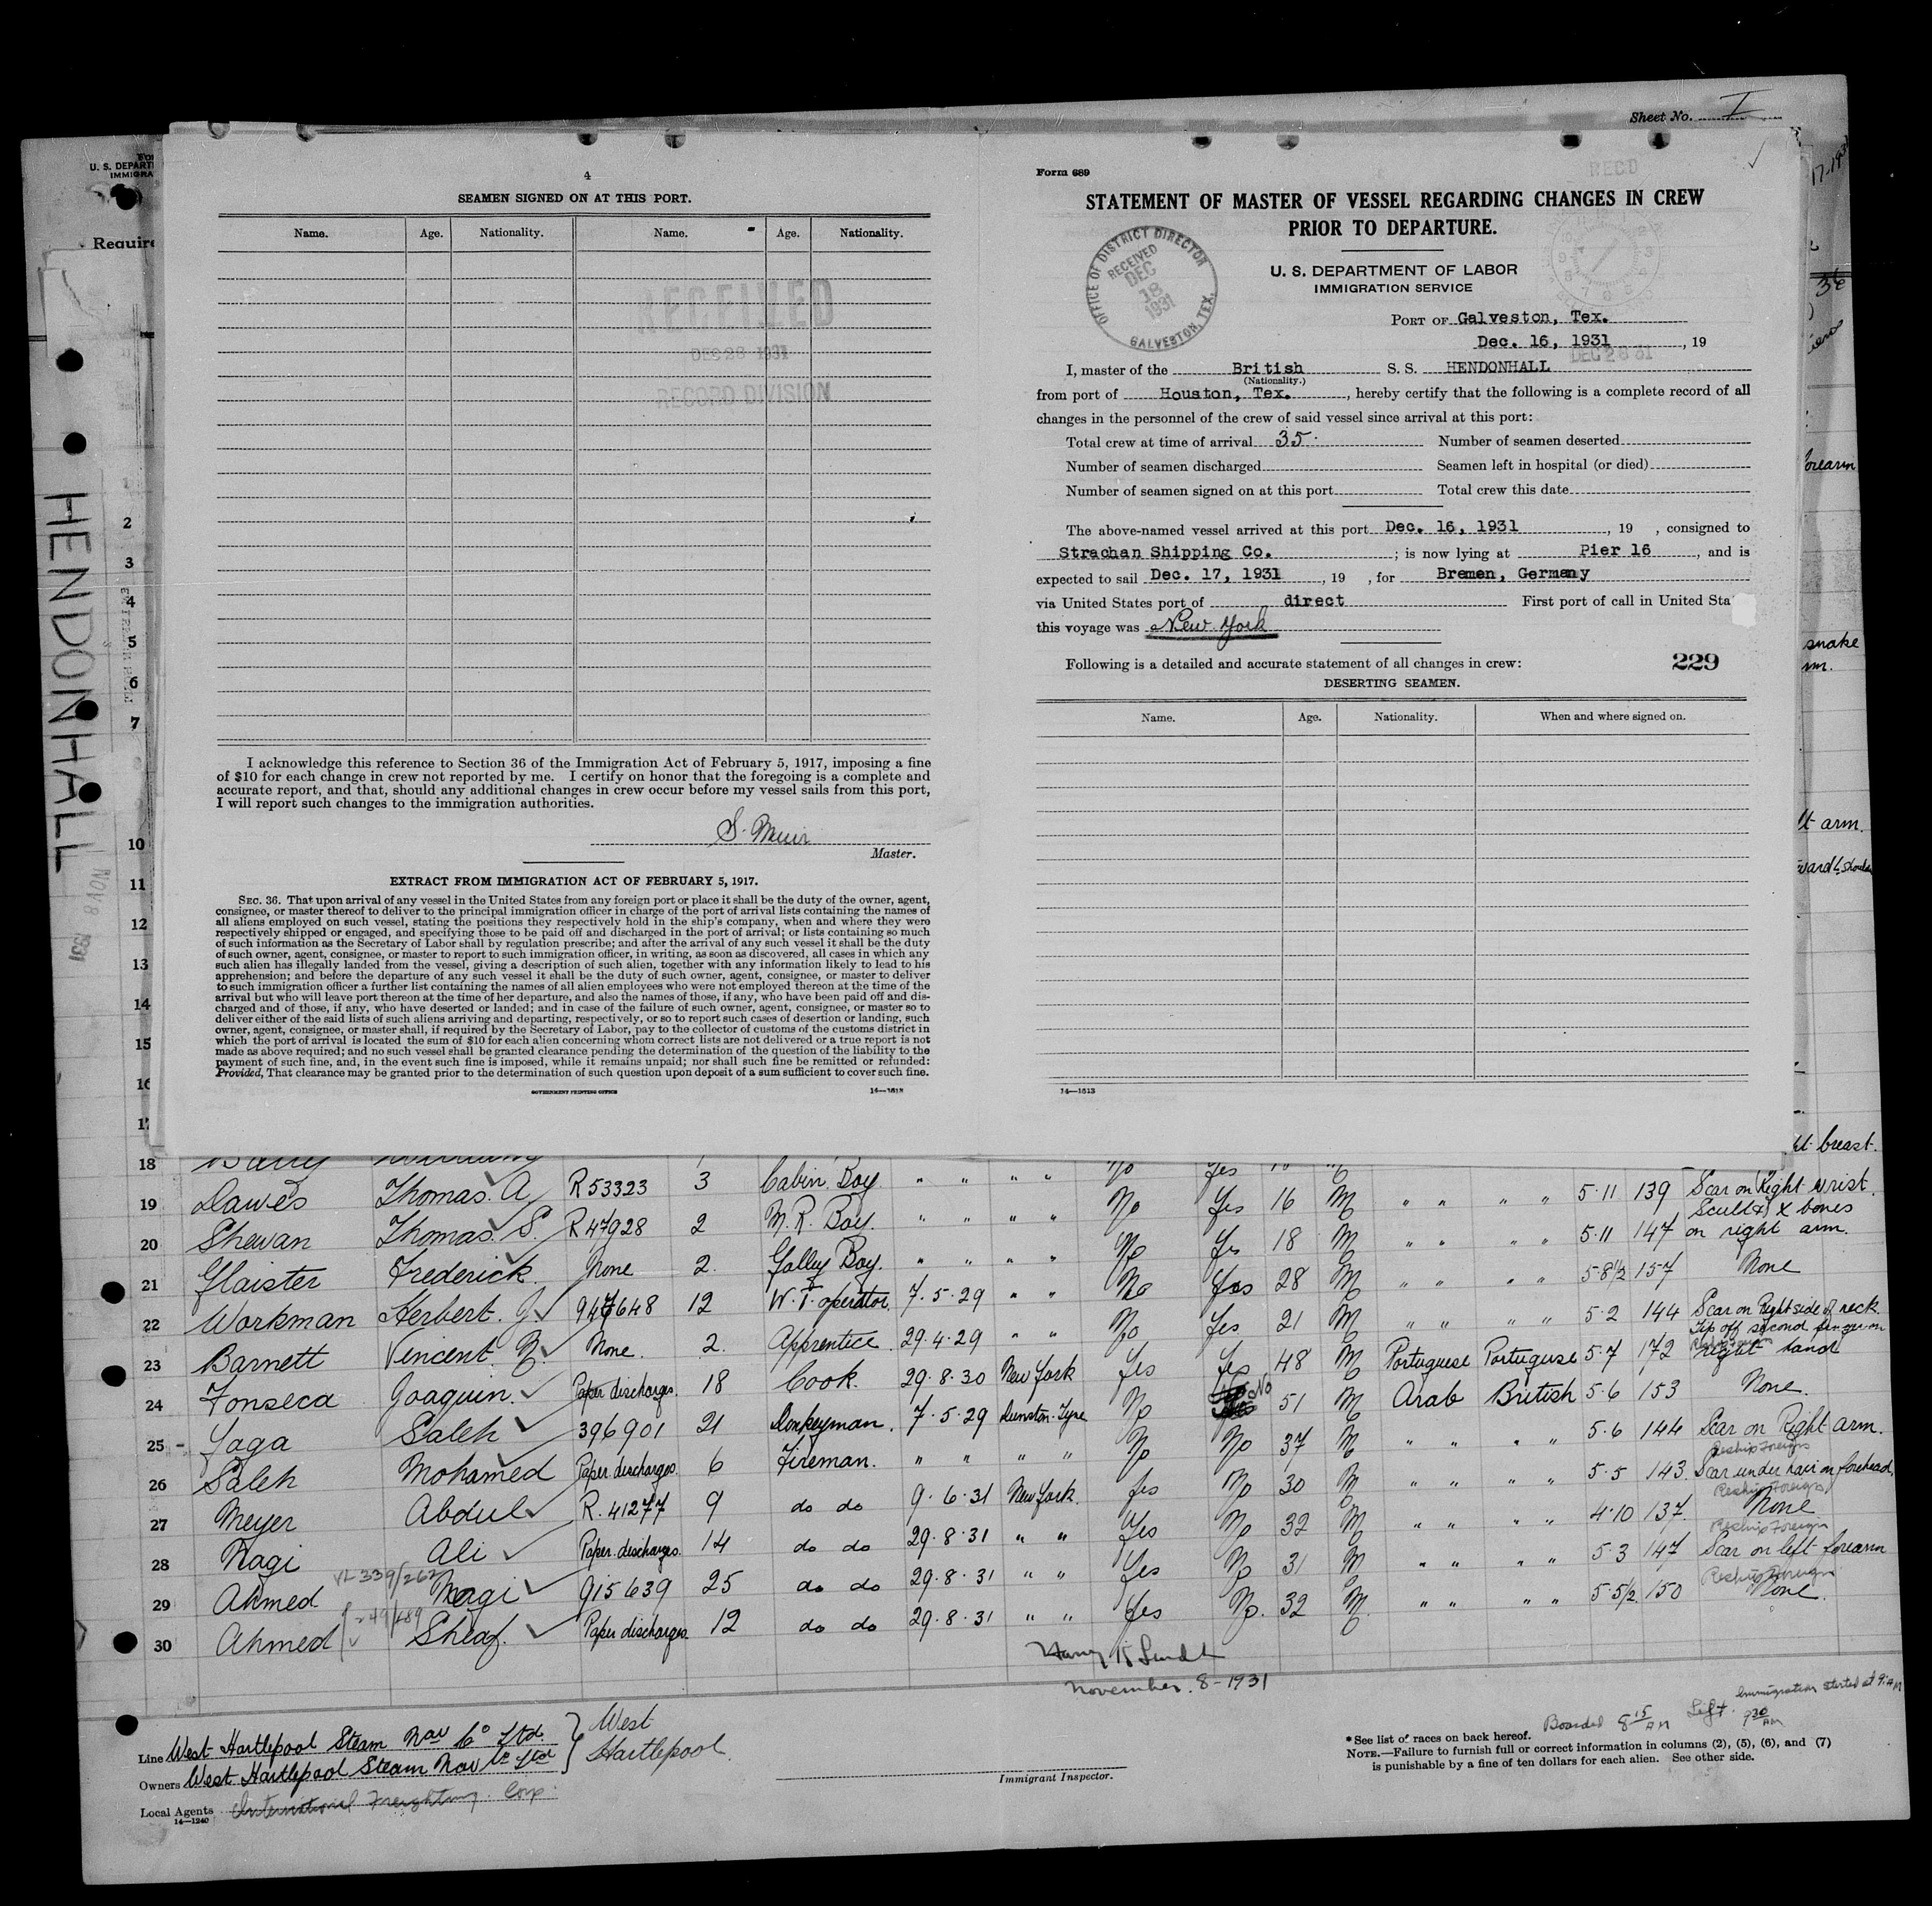 Sheet No. I
4
SEAMEN SIGNED ON AT THIS PORT.
Name. Age. Nationality. Name. Age. Nationality.
RECEIVED
DEC 28 1931
RECORD DIVISION
I acknowledge this reference to Section 36 of the Immigration Act of February 5, 1917, imposing a fine
of $10 for each change in crew not reported by me. I certify on honor that the foregoing is a complete and
accurate report, and that, should any additional changes in crew occur before my vessel sails from this port,
I will report such changes to the immigration authorities.
S. Muir
Master.
EXTRACT FROM IMMIGRATION ACT OF FEBRUARY 5, 1917.
SEC. 36. That upon arrival of any vessel in the United States from any foreign port or place it shall be the duty of the owner, agent,
consignee, or master thereof to deliver to the principal immigration officer in charge of the port of arrival lists containing the names of
all aliens employed on such vessel, stating the positions they respectively hold in the ship's company, when and where they were
respectively shipped or engaged, and specifying those to be paid off and discharged in the port of arrival; or lists containing so much
of such information as the Secretary of Labor shall by regulation prescribe; and after the arrival of any such vessel it shall be the duty
of such owner, agent, consignee, or master to report to such immigration officer, in writing, as soon as discovered, all cases in which any
such alien has illegally landed from the vessel, giving a description of such alien, together with any information likely to lead to his
apprehension; and before the departure of any such vessel it shall be the duty of such owner, agent, consignee, or master to deliver
to such immigration officer a further list containing the names of all alien employees who were not employed thereon at the time of the
arrival but who will leave port thereon at the time of her departure, and also the names of those, if any, who have been paid off and dis-
charged and of those, if any, who have deserted or landed; and in case of the failure of such owner, agent, consignee, or master so to
deliver either of the said lists of such aliens arriving and departing, respectively, or so to report such cases of desertion or landing, such
owner, agent, consignee, or master shall, if required by the Secretary of Labor, pay to the collector of customs of the customs district in
which the port of arrival is located the sum of $10 for each alien concerning whom correct lists are not delivered or a true report is not
made as above required; and no such vessel shall be granted clearance pending the determination of the question of the liability to the
payment of such fine, and, in the event such fine is imposed, while it remains unpaid; nor shall such fine be remitted or refunded:
Provided, That clearance may be granted prior to the determination of such question upon deposit of a sum sufficient to cover such fine.
GOVERNMENT PRINTING OFFICE 14—1613
Form 689
RECD
STATEMENT OF MASTER OF VESSEL REGARDING CHANGES IN CREW
PRIOR TO DEPARTURE.
OFFICE OF DISTRICT DIRECTOR
RECEIVED
DEC
18
1931
GALVESTON, TEX.
U. S. DEPARTMENT OF LABOR
IMMIGRATION SERVICE
PORT OF Galveston, Tex.
Dec. 16, 1931, 19
DEC 28 31
I, master of the British S. S. HENDONHALL
(Nationality.)
from port of Houston, Tex., hereby certify that the following is a complete record of all
changes in the personnel of the crew of said vessel since arrival at this port:
Total crew at time of arrival 35. Number of seamen deserted
Number of seamen discharged Seamen left in hospital (or died)
Number of seamen signed on at this port Total crew this date
The above-named vessel arrived at this port Dec. 16, 1931, 19 , consigned to
Strachan Shipping Co.; is now lying at Pier 16, and is
expected to sail Dec. 17, 1931, 19 , for Bremen, Germany
via United States port of direct First port of call in United Sta
this voyage was New York
Following is a detailed and accurate statement of all changes in crew: 229
DESERTING SEAMEN.
Name. Age. Nationality. When and where signed on.
14—1613
U. S. DEPART
IMMIGRA
Require
HENDONHALL
NOV 8 1931
2
3
4
5
6
7
10
11
12
13
14
15
16
forearm
snake
arm.
breast.
18
19 Dawes Thomas. A R 53323 3 Cabin Boy " " " " No Yes 16 M " " " " 5·11 139 Scar on Right wrist.
20 Shewan Thomas. S. R 47928 2 M. R. Boy. " " " " No Yes 18 M " " " " 5·11 147 Scull & X bones on right arm.
21 Glaister Frederick. None 2. Galley Boy. " " " " No Yes 28 M " " " " 5·8½ 157 None
22 Workman Herbert. J 947648 12 W.T. operator. 7·5·29 " " No Yes 21 M " " " " 5·2 144 Scar on Right side of neck.
23 Barnett Vincent. None. 2. Apprentice. 29·4·29
Tip off second finger on right hand
24 Fonseca Joaquin. Paper discharges. 18 Cook. 29·8·30 New York Yes Yes 48 M Portuguese Portuguese 5·7 172
25 Yaga Saleh 396901 21 Donkeyman. 7·5·29 Dunston-Tyne No No 51 M Arab British 5·6 153 None.
26 Saleh Mohamed Paper discharges. 6 Fireman. " " " " No No 37 M " " " " 5·6 144 Scar on Right arm.
27 Meyer Abdul R. 41277 9 do do 9·6·31 New York. Yes No 30 M " " " " 5·5 143. Scar under hair on forehead.
28 Nagi Ali Paper discharges. 14 do do 29·8·31 " " Yes No 32 M " " " " 4·10 137. None
Reship Foreign
29 Ahmed Nagi 915639 25 do do 29·8·31 " " Yes No 31 M " " " " 5·3 147 Scar on left forearm
Reship Foreign
30 Ahmed Sheaf. Paper discharges 12 do do 29·8·31 " " Yes No. 32 M. " " " " 5·5½ 150 None.
November. 8-1931
Line West Hartlepool Steam Nav Co Ltd.
Owners West Hartlepool Steam Nav Co Ltd
West Hartlepool.
Local Agents International Freighting Corp.
14—1240
Immigrant Inspector.
Boarded 8 15 AM Left. 9 30 AM
Immigration started at
* See list of races on back hereof.
NOTE.—Failure to furnish full or correct information in columns (2), (5), (6), and (7)
is punishable by a fine of ten dollars for each alien. See other side.